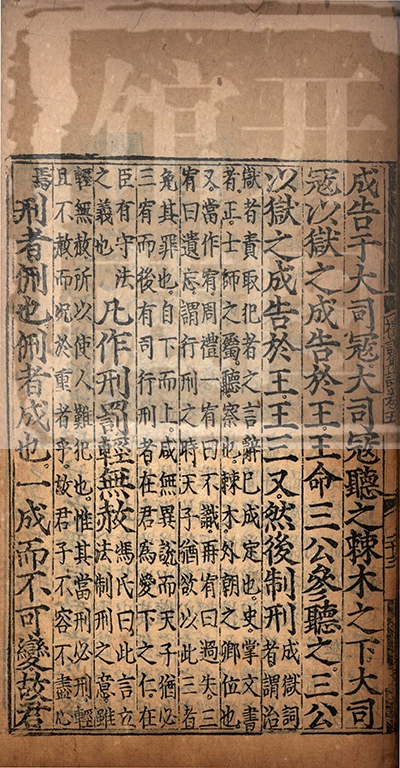 成告于大司寇大司寇聽之棘木之下大司
寇以獄之成告於王王命三公參聽之三公
以獄之成告於王王三又然後制刑成獄詞
者謂治
獄者責取犯者之言辭已成定也史掌文書
者正士師之屬聽察也棘木外朝之卿位也
又當作宥周禮一宥曰不識再宥曰過失三
宥曰遺忘謂行刑之時天子猶欲以此三者
免其罪也自下而上咸無異說而天子猶必
三宥而後有司行刑者在君爲愛下之仁在
臣有守法
之義也
凡作刑罰輕無赦
馮氏曰此言立
法制刑之意雖
輕無赦所以使人難犯也惟其當刑必刑輕
且不赦而况於重者乎故君子不容不盡心
焉
刑者侀也侀者成也一成而不可變故君